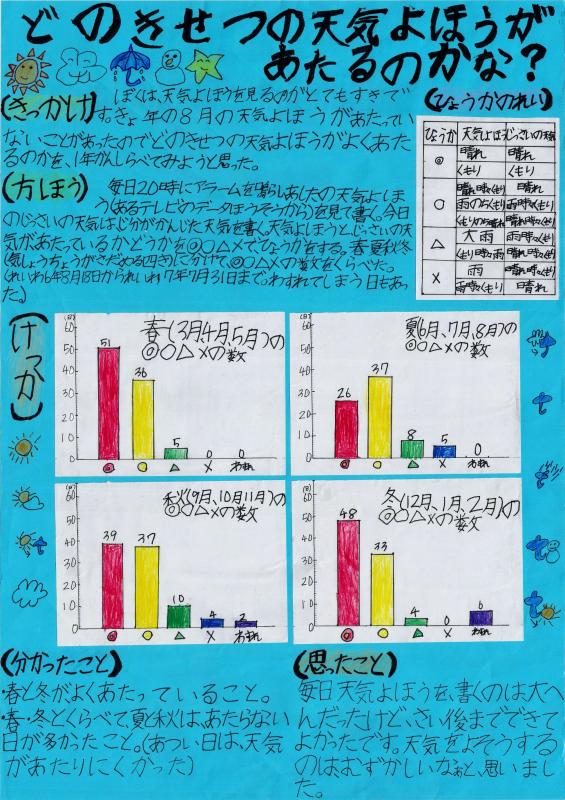 どのきせつの天気よほうが
あたるのかな?
(きっかけ)
ぼくは、天気よほうを見るのがとてもすきで
す。きょ年の8月の天気よほうがあたってい
ないことがあったのでどのきせつの天気よほうがよくあた
るのかを、1年かんしらべてみようと思った。
(方ほう)
毎日20時にアラームを鳴らしあしたの天気よほ
う(あるテレビのデータほうそうから)を見て書く。今日
のじっさいの天気は、じ分がかんじた天気を書く。天気よほうと、じっさいの天
気があたっているかどうかを◎○△×でひょうかをする。春、夏、秋、冬
(気しょうちょうがさだめる四き)に分けて、◎○△×の数をくらべた。
(れいわ6年8月18日かられいわ7年7月31日まで。わすれてしまう日もあっ
た。)
(ひょうかのれい)
ひょうか 天気よほう じっさいの天気
◎ 晴れ 晴れ
くもり くもり
○ 晴れ時々くもり 晴れ
雨のちくもり 雨時々くもり
くもりのち晴れ 晴れ時々くもり
△ 大雨 雨時々くもり
くもり時々雨 晴れ時々くもり
× 雨 晴れ時々くもり
雨時々くもり 晴れ
(けっか)
春(3月、4月、5月)の
◎○△×の数
(日)
60
50
40
30
20
10
0
51
36
5
0
0
◎ ○ △ × わすれ
夏(6月、7月、8月)の
◎○△×の数
(日)
60
50
40
30
20
10
0
26
37
8
5
0
◎ ○ △ × わすれ
秋(9月、10月、11月)の
◎○△×の数
(日)
60
50
40
30
20
10
0
39
37
10
4
2
◎ ○ △ × わすれ
冬(12月、1月、2月)の
◎○△×の数
(日)
60
50
40
30
20
10
0
48
33
4
0
6
◎ ○ △ × わすれ
(分かったこと)
・春と冬がよくあたっていること。
・春・冬とくらべて夏と秋は、あたらない
日が多かったこと。(あつい日は、天気
があたりにくかった)
(思ったこと)
毎日天気よほうを、書くのは大へ
んだったけど、さい後までできて
よかったです。天気をよそうする
のはむずかしいなぁと、思いまし
た。